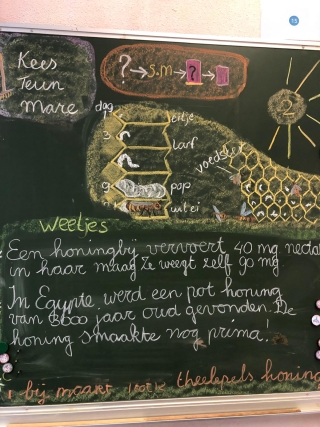 Kees
Teun
Mare
? → s.m → ? →
2
dag
1
eitje
3
larf
voedster
9
pop
uilei
weetjes
Een honingbij vervoert 40 mg nectar
in haar maag ze weegt zelf 90 mg
In Egypte werd een pot honing
van 3000 jaar oud gevonden. De
honing smaakte nog prima!
1 bij maakt theelepels honing